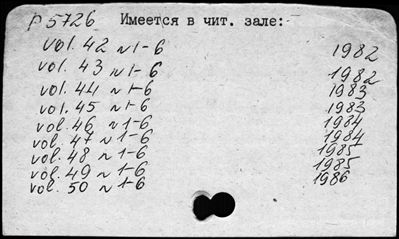 P 5726 Имеется в чит. зале:
vol. 42 n 1-6 1982
vol. 43 n 1-6 1982
vol. 44 n 1-6 1983
vol. 45 n 1-6 1983
vol. 46 n 1-6 1984
vol. 47 n 1-6 1984
vol. 48 n 1-6 1985
vol. 49 n 1-6 1985
vol. 50 n 1-6 1986